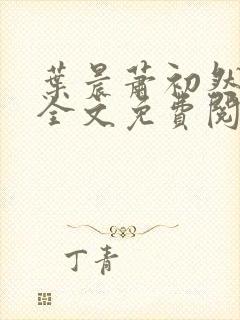 葉晨蕭初然
全文免費閱
丁青